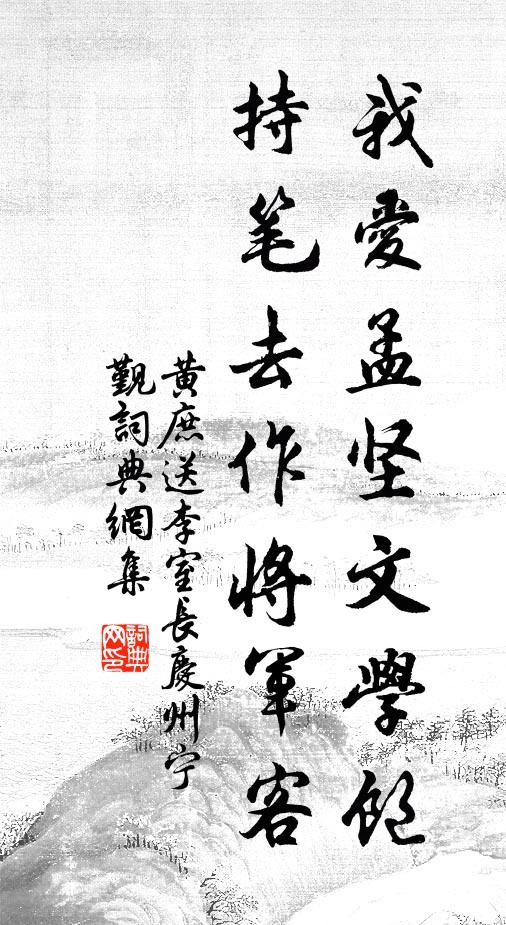 我愛孟坚文學飽
持笔去作將軍客
黄庶送李室長慶州宁
覲詞典網集
詞典網印